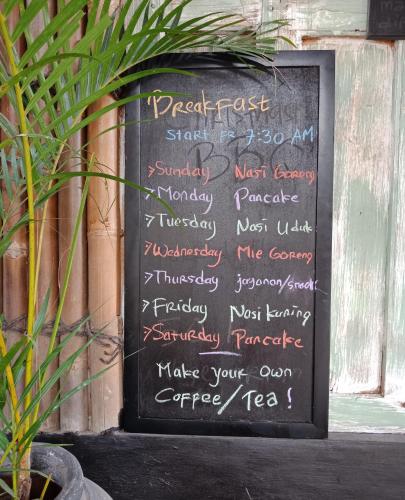 Breakfast
Start FR 7:30 AM
>Sunday Nasi Goreng
>Monday Pancake
>Tuesday Nasi Uduk
>Wednesday Mie Goreng
>Thursday jajanan/snack
>Friday Nasi kuning
>Saturday Pancake
Make your Own
Coffee/Tea!